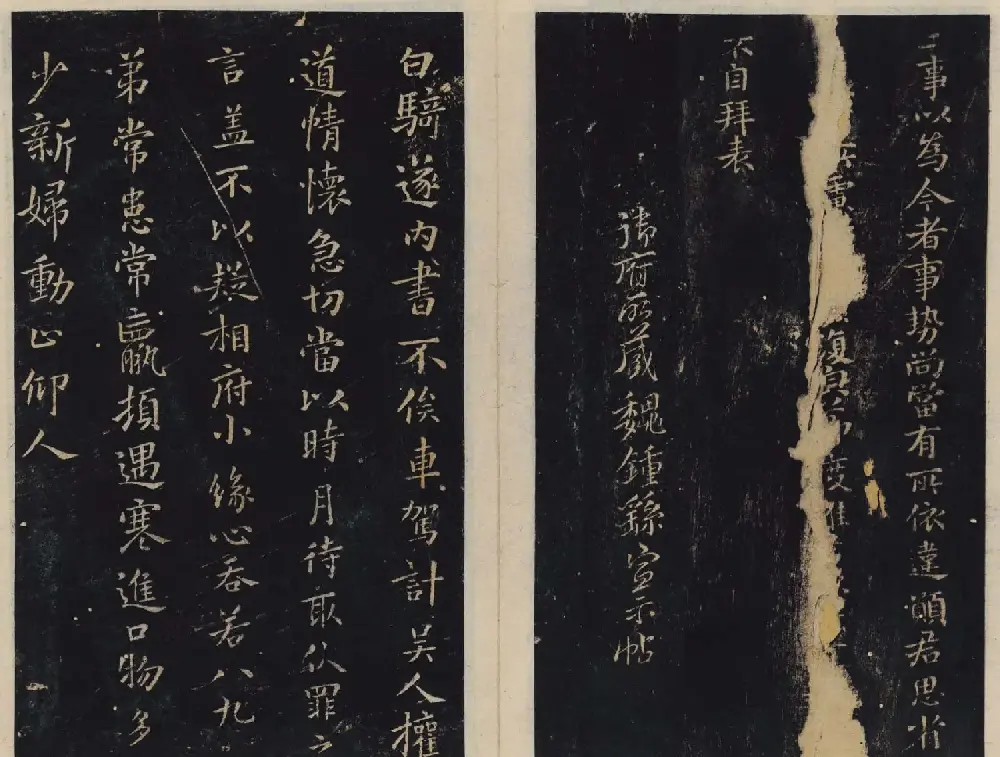 二事以為今者事势尚當有所依違願君思省
重復度唯
不自拜表
府所蔵魏鍾繇宣示帖
白騎遂内書不俟車駕計吴人權
道情懷急切當以時月待取伏罪之
言盖不以疑相府小緣心吞若八九
弟常患常羸頓遇寒進口物多
少新婦動止仰人